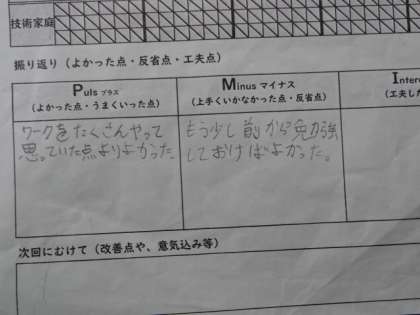 技術家庭
振り返り（よかった点・反省点・工夫点）
Puls プラス
（よかった点・うまくいった点）
Minus マイナス
（上手くいかなかった点・反省点）
Inter
（工夫した
ワークをたくさんやって
思っていた点よりよかった。
もう少し前から勉強
しておけばよかった。
次回にむけて（改善点や、意気込み等）